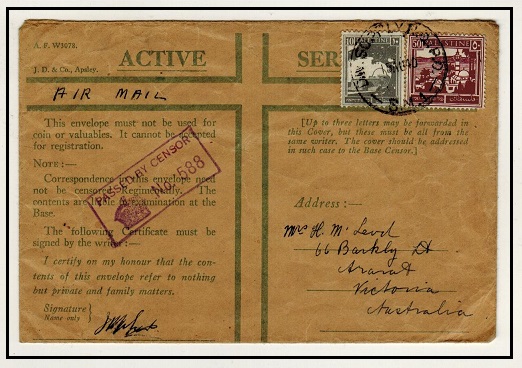 A. F. W3078.
J. D. & Co., Apsley.
ACTIVE
AIR MAIL
This envelope must not be used for
coin or valuables. It cannot be accepted
for registration.
NOTE :—
Correspondence in this envelope need
not be censored Regimentally. The
contents are liable to examination at the
Base.
The following Certificate must be
signed by the writer :—
I certify on my honour that the con-
tents of this envelope refer to nothing
but private and family matters.
Signature
Name only
PASSED BY CENSOR
No. 588
PALESTINE
50 PALESTINE
[Up to three letters may be forwarded in
this Cover, but these must be all from the
same writer. The cover should be addressed
in such case to the Base Censor.]
Address :—
Mrs H. Mc
66 Barkly St
Ararat
Victoria
Australia